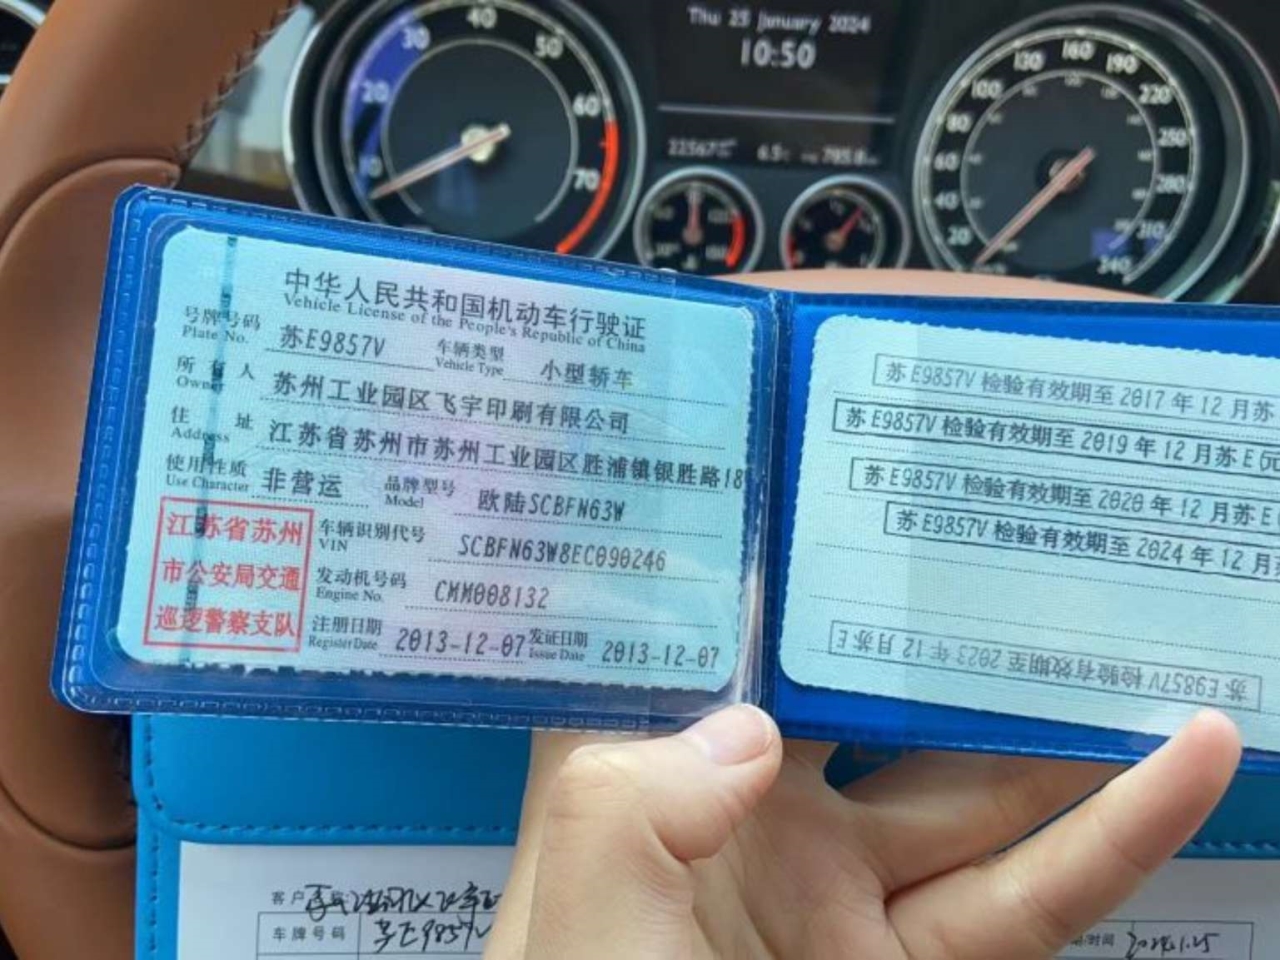 Thu 25 January 2024
10:50
10 20 30 40 50 60 70
20 40 60 80 100 130 160 190 220 250 280 310 340
中华人民共和国机动车行驶证
Vehicle License of the People's Republic of China
号牌号码 苏E9857V 车辆类型 小型轿车
Plate No. Vehicle Type
所有人 苏州工业园区飞宇印刷有限公司
Owner
住址 江苏省苏州市苏州工业园区胜浦镇银胜路18
Address
使用性质 非营运 品牌型号 欧陆SCBFN63W
Use Character Model
江苏省苏州
市公安局交通
巡逻警察支队
车辆识别代号 SCBFN63W8EC090246
VIN
发动机号码 CMM008132
Engine No.
注册日期 2013-12-07 发证日期 2013-12-07
Register Date Issue Date
苏E9857V 检验有效期至 2017 年 12 月苏
苏E9857V 检验有效期至 2019 年 12 月苏E(元
苏E9857V 检验有效期至 2020 年 12 月苏E
苏E9857V 检验有效期至 2024 年 12 月
苏E9857V 检验有效期至 2023 年 12 月苏E
客户
车牌号码 苏E9857V
时间 2024.1.25